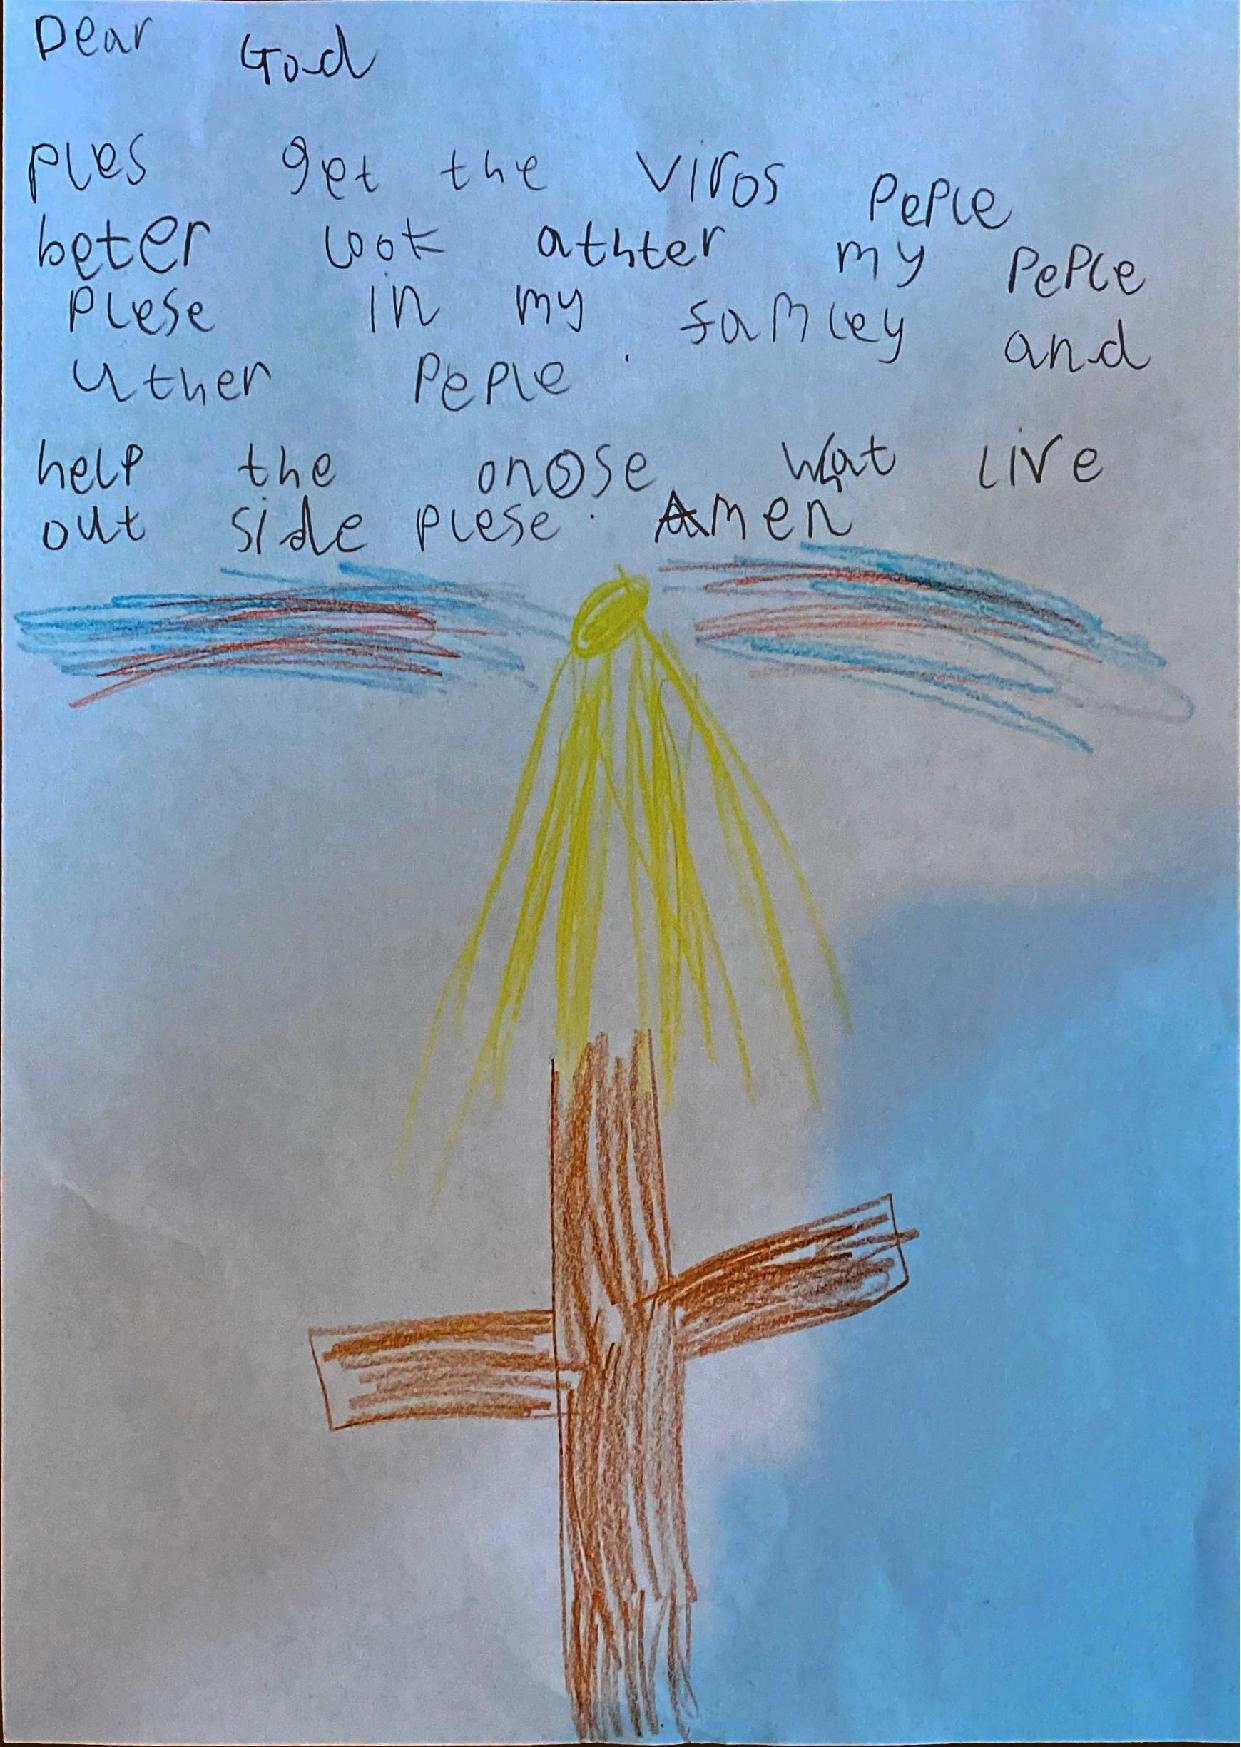 Dear God
ples get the viros peple
beter look athter my peple
plese in my famley and
uther peple.
help the onose what live
out side plese. Amen